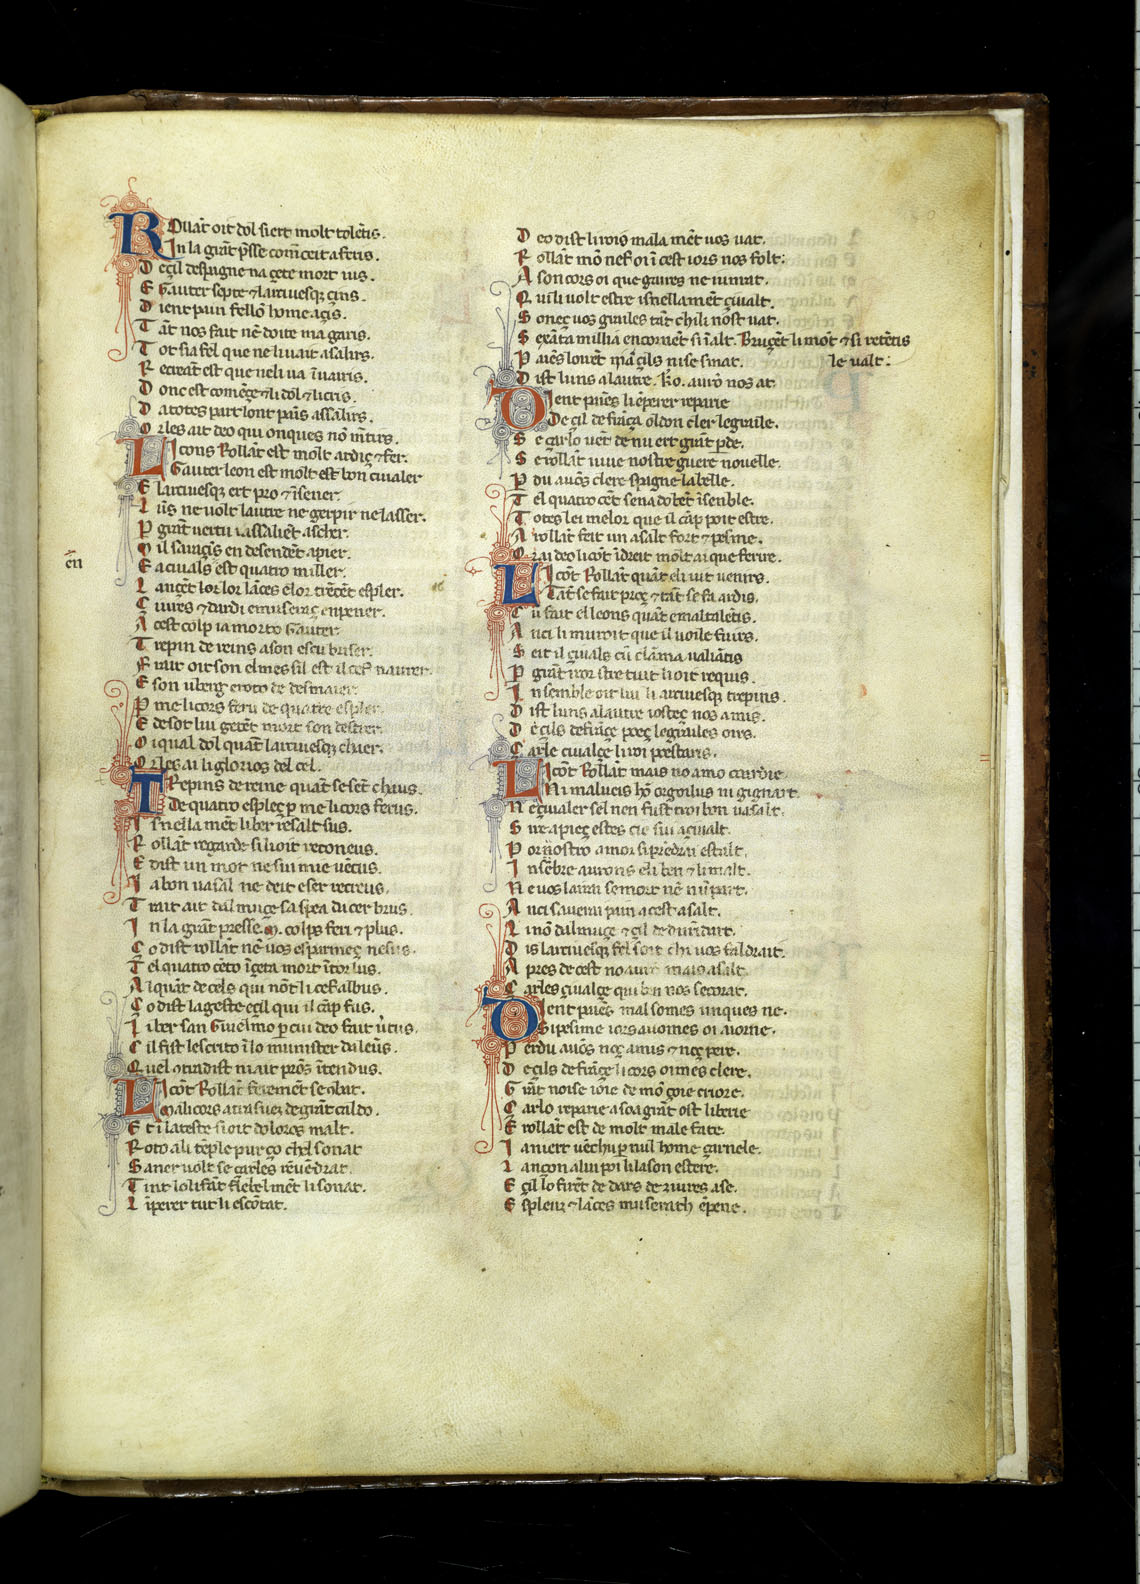 Rollāt oit dol si ert molt tolētis.
In la grāt p̄sse comēcit a ferus.
De cil despagne na gete mort uis.
E Gauter septe ⁊ larciuesq; çins.
Dient pain fellō home açis.
Tāt nos fait nē doite ma garis.
Tot sia fel que ne li uait asalirs.
Recreāt est que ueli ua ī uauris.
Donc est comēçe ⁊ li dol ⁊ li cris.
Da totes part lont paīs assalirs.
Or les ait deo qui onques nō mtirs.
Li cons Rollāt est molt ardiç ⁊ fer.
Gauter leon est molt est bon ciualer
E larciuesq; ert pro ⁊ īsener.
Lūs ne uolt lautre ne gerpir ne lasser.
P grāt uertu uassalīēt a scher.
Mil sarraçis en desendēt a pier.
E a ciuals est quatro miller.
en
Lancēt lor lor lāces e lor trēcēt espler.
Ciures ⁊ dardi e museraç enpener.
A cest colp ia morto Gauter.
Trepin de reins a son escu briser.
Frait oit son elmes sil est il cef naurer.
E son uberg eroto de desmaier.
P me li cors feru de quatre espler.
E desot lui getēt mort son destrer.
Oi qual dol quāt larciuesq; chaer.
Or les ai li glorios del cel.
Trepins de reine quāt se sēt chaus.
De quatro espleç p me li cors ferus.
Isnella mēt li ber resalt sus.
Rollāt regarde si li oit reconeus.
E dist un mot ne sui mie uēcus.
Ia bon uasal ne deit eser recreus.
Trait ait dalmiuçe sa spea dacer brus.
In la grāt presse .M. colps feri ⁊ plus.
Ço dist rollāt nē uos esparmeç nesus.
Tel quatro cēto iceta mort itor lus.
Alquāt de cels qui nōt li cef al bus.
Ço dist la geste e çil qui il cāp fus.
Liber san Guielmo p cui deo fait uertus.
Cil fist lescrito ī lo munister da leūs.
Quel 9tradist ni ait pros ītendus.
Li cōt Rollāt feremēt se 9bat.
Mali cors atrasuei de grāt caldo.
E tī la teste si oit doloros malt.
Roto a li tēple pur ço chel sonat
Saner uolt se carles reuēdrat.
Tint lolifāt flebel mēt li sonat.
Līperer tut li escōtat.
Deo dist li rois mala mēt uos uat.
Rollāt mō nef oi ī cest iors nos folt:
A son cors oi que gaires ne uiurat.
Qui li uolt estre isnellamēt çiualt.
Soneç uos grailes tāt chil i nōst uat.
Sexāta millia en cornēt si ī alt. Bruçēt li mōt ⁊ si retētis
Paiēs loiuēt nā çils ni se smat. le ualt:
Dist luns a lautre. Ko. aurō nos at
Dient paiēs li ēperer reparie
De çil de frāça oldon cler le graile.
Se carlo uēt de nu ert grāt p̄de.
Se rollāt uiue nostre guere nouelle.
Pdu auōs clere spagne la belle.
Tel quatro cēt sena dobēt īsenble.
Totes lei melor que il cāp poit estre.
A rollāt feit un asalt fort ⁊ pesme.
Or ai deo li cōt īdreit molt ai que ferire.
Li cōt Rollāt quāt eli uit uenirs.
Tāt se fait proç ⁊ tāt se fa ardis.
Cu fait el leons quāt e maltalētis.
Anci li moroit que il uoile fuirs.
Seit il çiuals cū clāma ualiātis
P grāt iror stre tuit li oit requis.
In semble oit lui li arciuesq; trepins.
Dist luns a lautre iosteç nos amis.
De çils de frāçe poeç le grailes oirs.
Carle ciualçe li roi p̄stans.
Li cōt Rollāt mais no amo coardie
Ni malueis hō orgoilus ni gignart.
Ne çiualer sel nen fust troi bon uasalt.
Sire a pieç estes eie sui a çiualt.
Por nostro amor si prēdrai estalt.
In sēbre aurons eli ben ⁊ li malt.
Ne uos lairai se mort nē mi part.
Anci sauerai pain acest asalt.
Li nō dalmiuçe ⁊ çil de durīdart.
Dis larciuesq; fel soit chi uos faldrait.
Apres de cest no auro mais asalt.
Carles çiualçe qui ben nos secorat.
Dient paiēs mal somes unques ne.
Si pesime iors auomes oi aiorne.
Perdu auōs noç amis ⁊ noç pere.
De çils de frāçe li cors oimēs clere.
Grāt noise ioie de mō çoie criore.
Carlo reparie a soa grāt ost liberie
E rollāt est de molt male faite.
Ia ni ert uēchu p nul home carnele.
Lançon a lui poi li lason estere.
E çil lo firēt de dars de uiures ase.
E spleuz ⁊ lāces muserath ēpene.